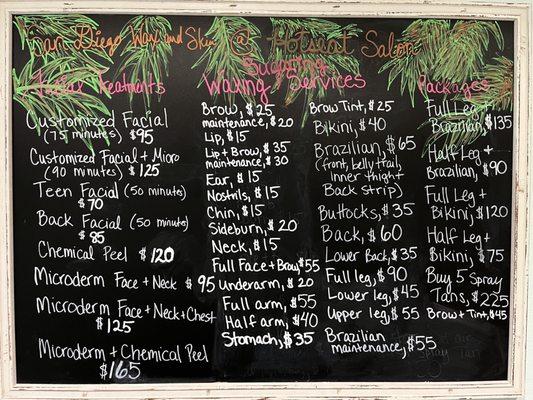 San Diego Wax and Skin @ Hotseat Salon
Facial Treatments
Customized Facial
(75 minutes) $95
Customized Facial + Micro
(90 minutes) $125
Teen Facial (50 minutes)
$70
Back Facial (50 minute)
$85
Chemical Peel $120
Microderm Face + Neck $95
Microderm Face + Neck + Chest
$125
Microderm + Chemical Peel
$165
Sugaring
Waxing Services
Brow, $25
maintenance, $20
Lip, $15
Lip + Brow, $35
maintenance, $30
Ear, $15
Nostrils, $15
Chin, $15
Sideburn, $20
Neck, $15
Full Face + Brow, $55
Underarm, $20
Full arm, $55
Half arm, $40
Stomach, $35
Brow Tint, $25
Bikini, $40
Brazilian, $65
(front, belly trail,
inner thigh +
Back strip)
Buttocks, $35
Back, $60
Lower Back, $35
Full leg, $90
Lower leg, $45
Upper leg, $55
Brazilian
maintenance, $55
Packages
Full Leg +
Brazilian, $135
Half Leg +
Brazilian, $90
Full Leg +
Bikini, $120
Half Leg +
Bikini, $75
Buy 5 Spray
Tans, $225
Brow + Tint, $45